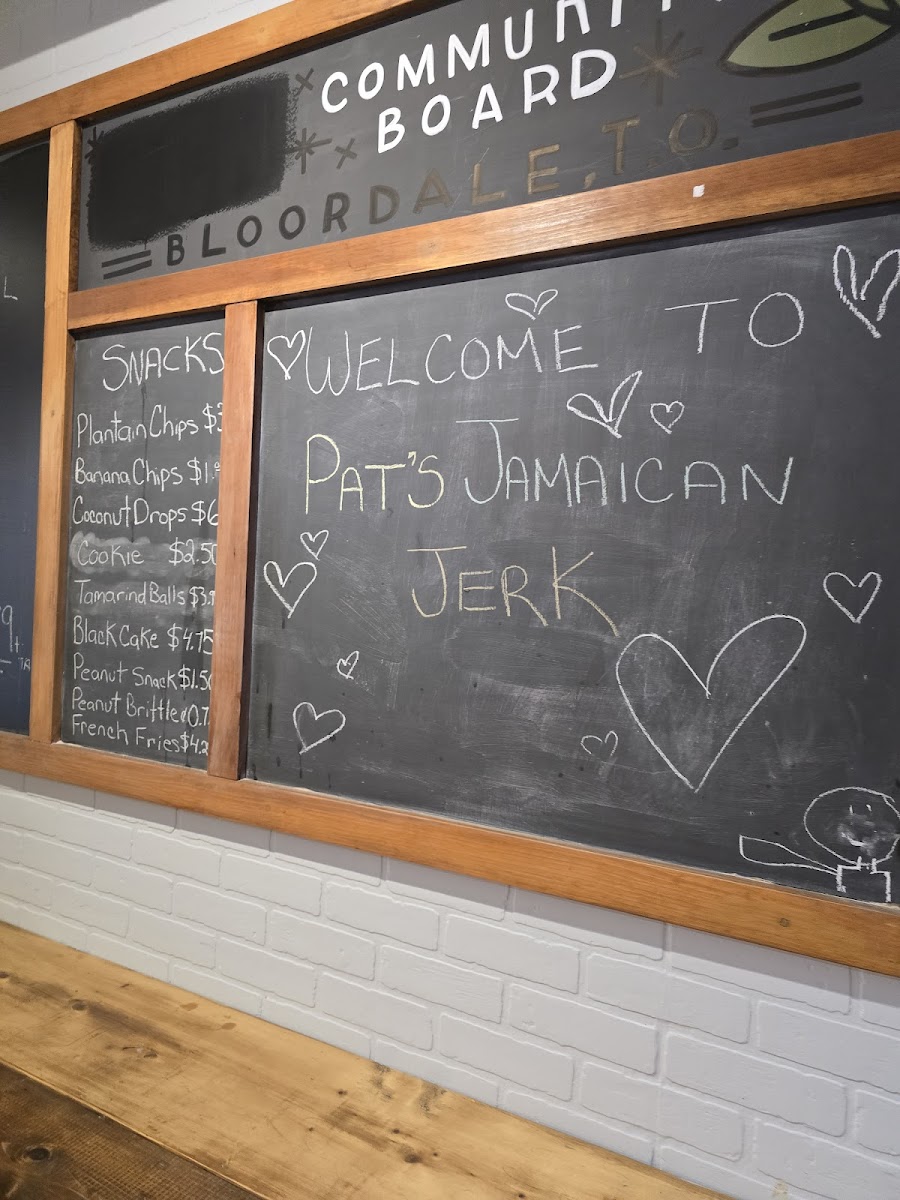 COMMUNITY
BOARD
BLOORDALE, T.O.
L
SNACKS
Plantain Chips $3
Banana Chips $1.
Coconut Drops $6
Cookie $2.50
Tamarind Balls $3.
Black Cake $4.75
Peanut Snack $1.50
Peanut Brittle 0.7
French Fries $4.2
WELCOME TO
PAT'S JAMAICAN
JERK